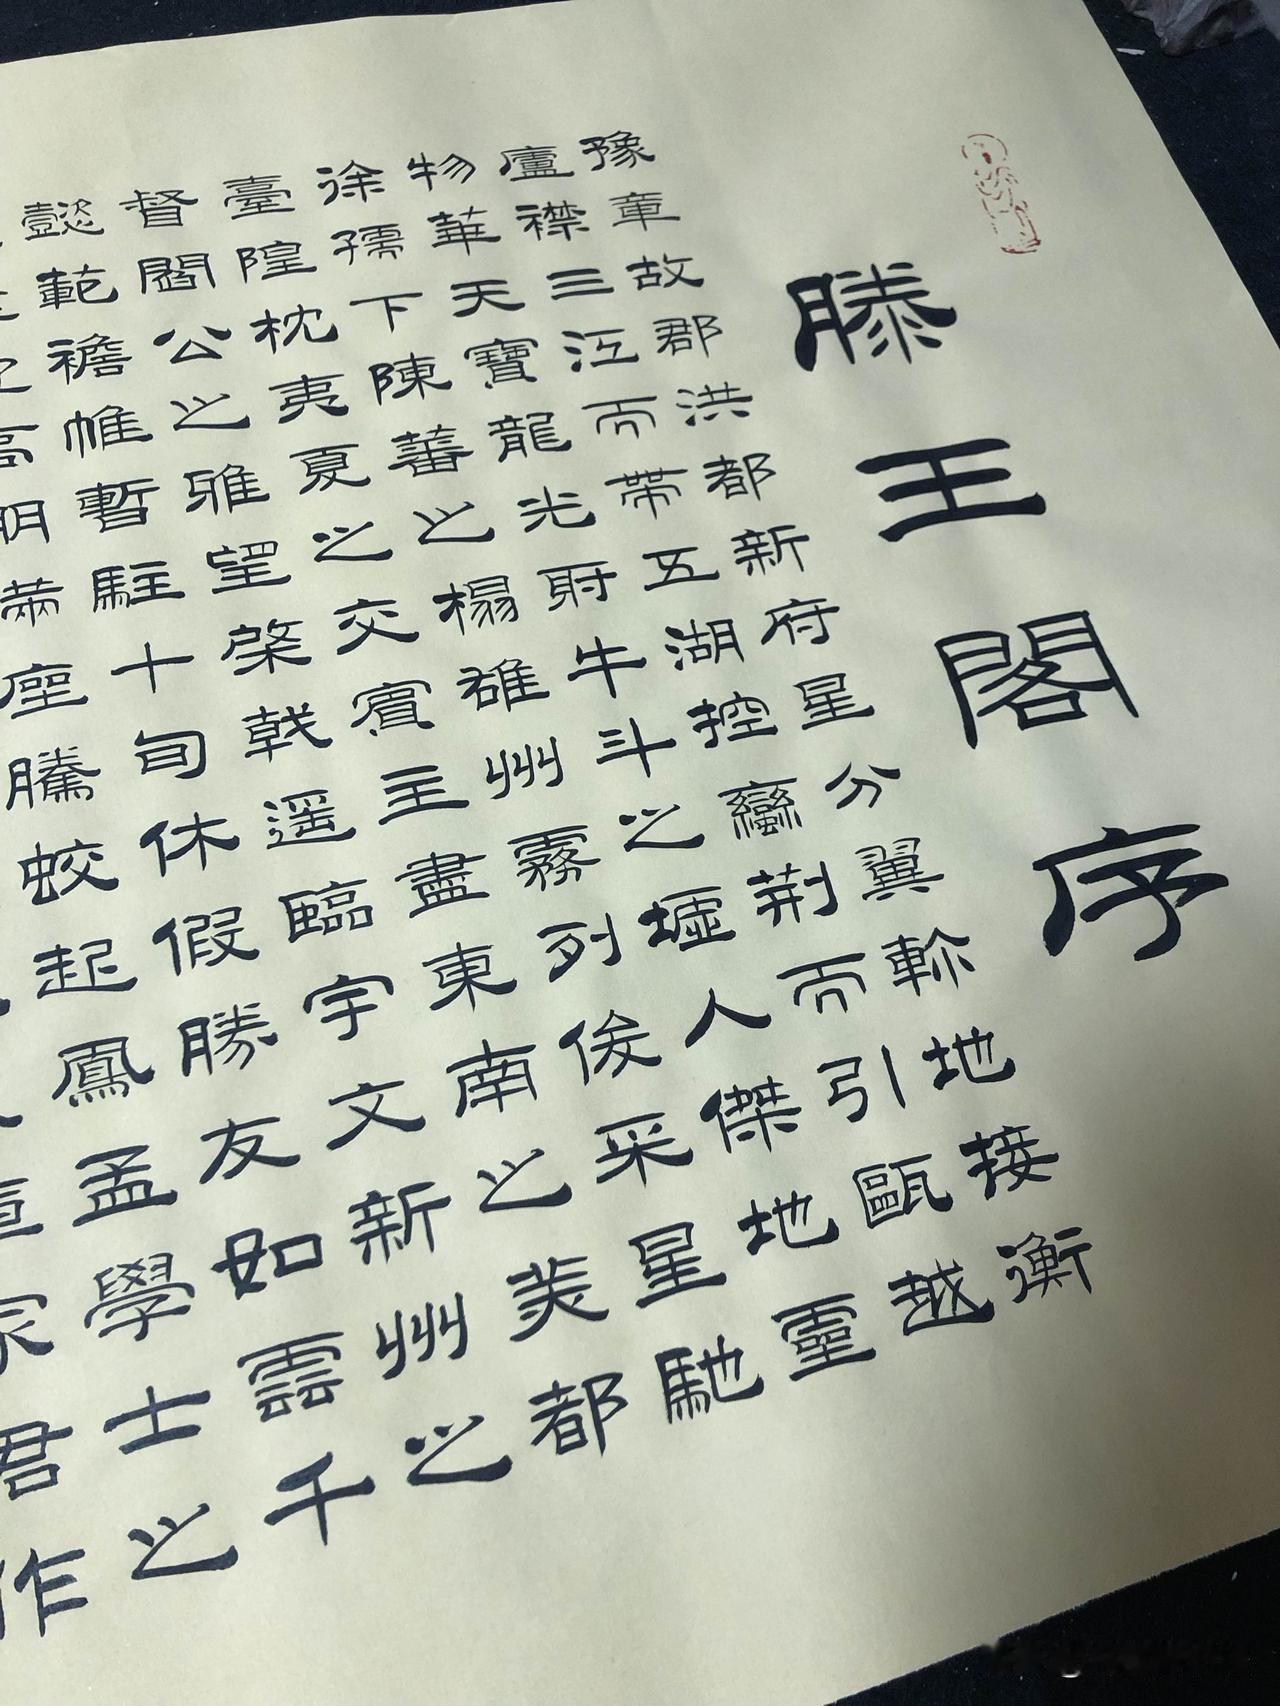 滕王閣序
豫章故郡洪都新府星分翼軫地接衡
廬襟三江而帶五湖控蠻荊而引甌越
物華天寶龍光射牛斗之墟人傑地靈
徐孺下陳蕃之榻雄州霧列俊采星馳
臺隍枕夷夏之交賓主盡東南之美都
督閻公之雅望棨戟遥臨宇文新州之
懿範襜帷暫駐十旬休假勝友如雲千
高朋滿座騰蛟起鳳孟學士之
家君作